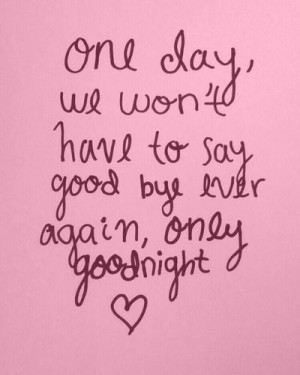 one day,
we won't
have to say
good bye ever
again, only
goodnight